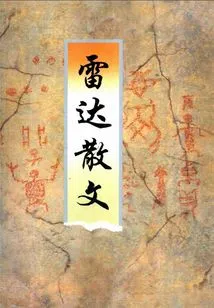 雷达散文